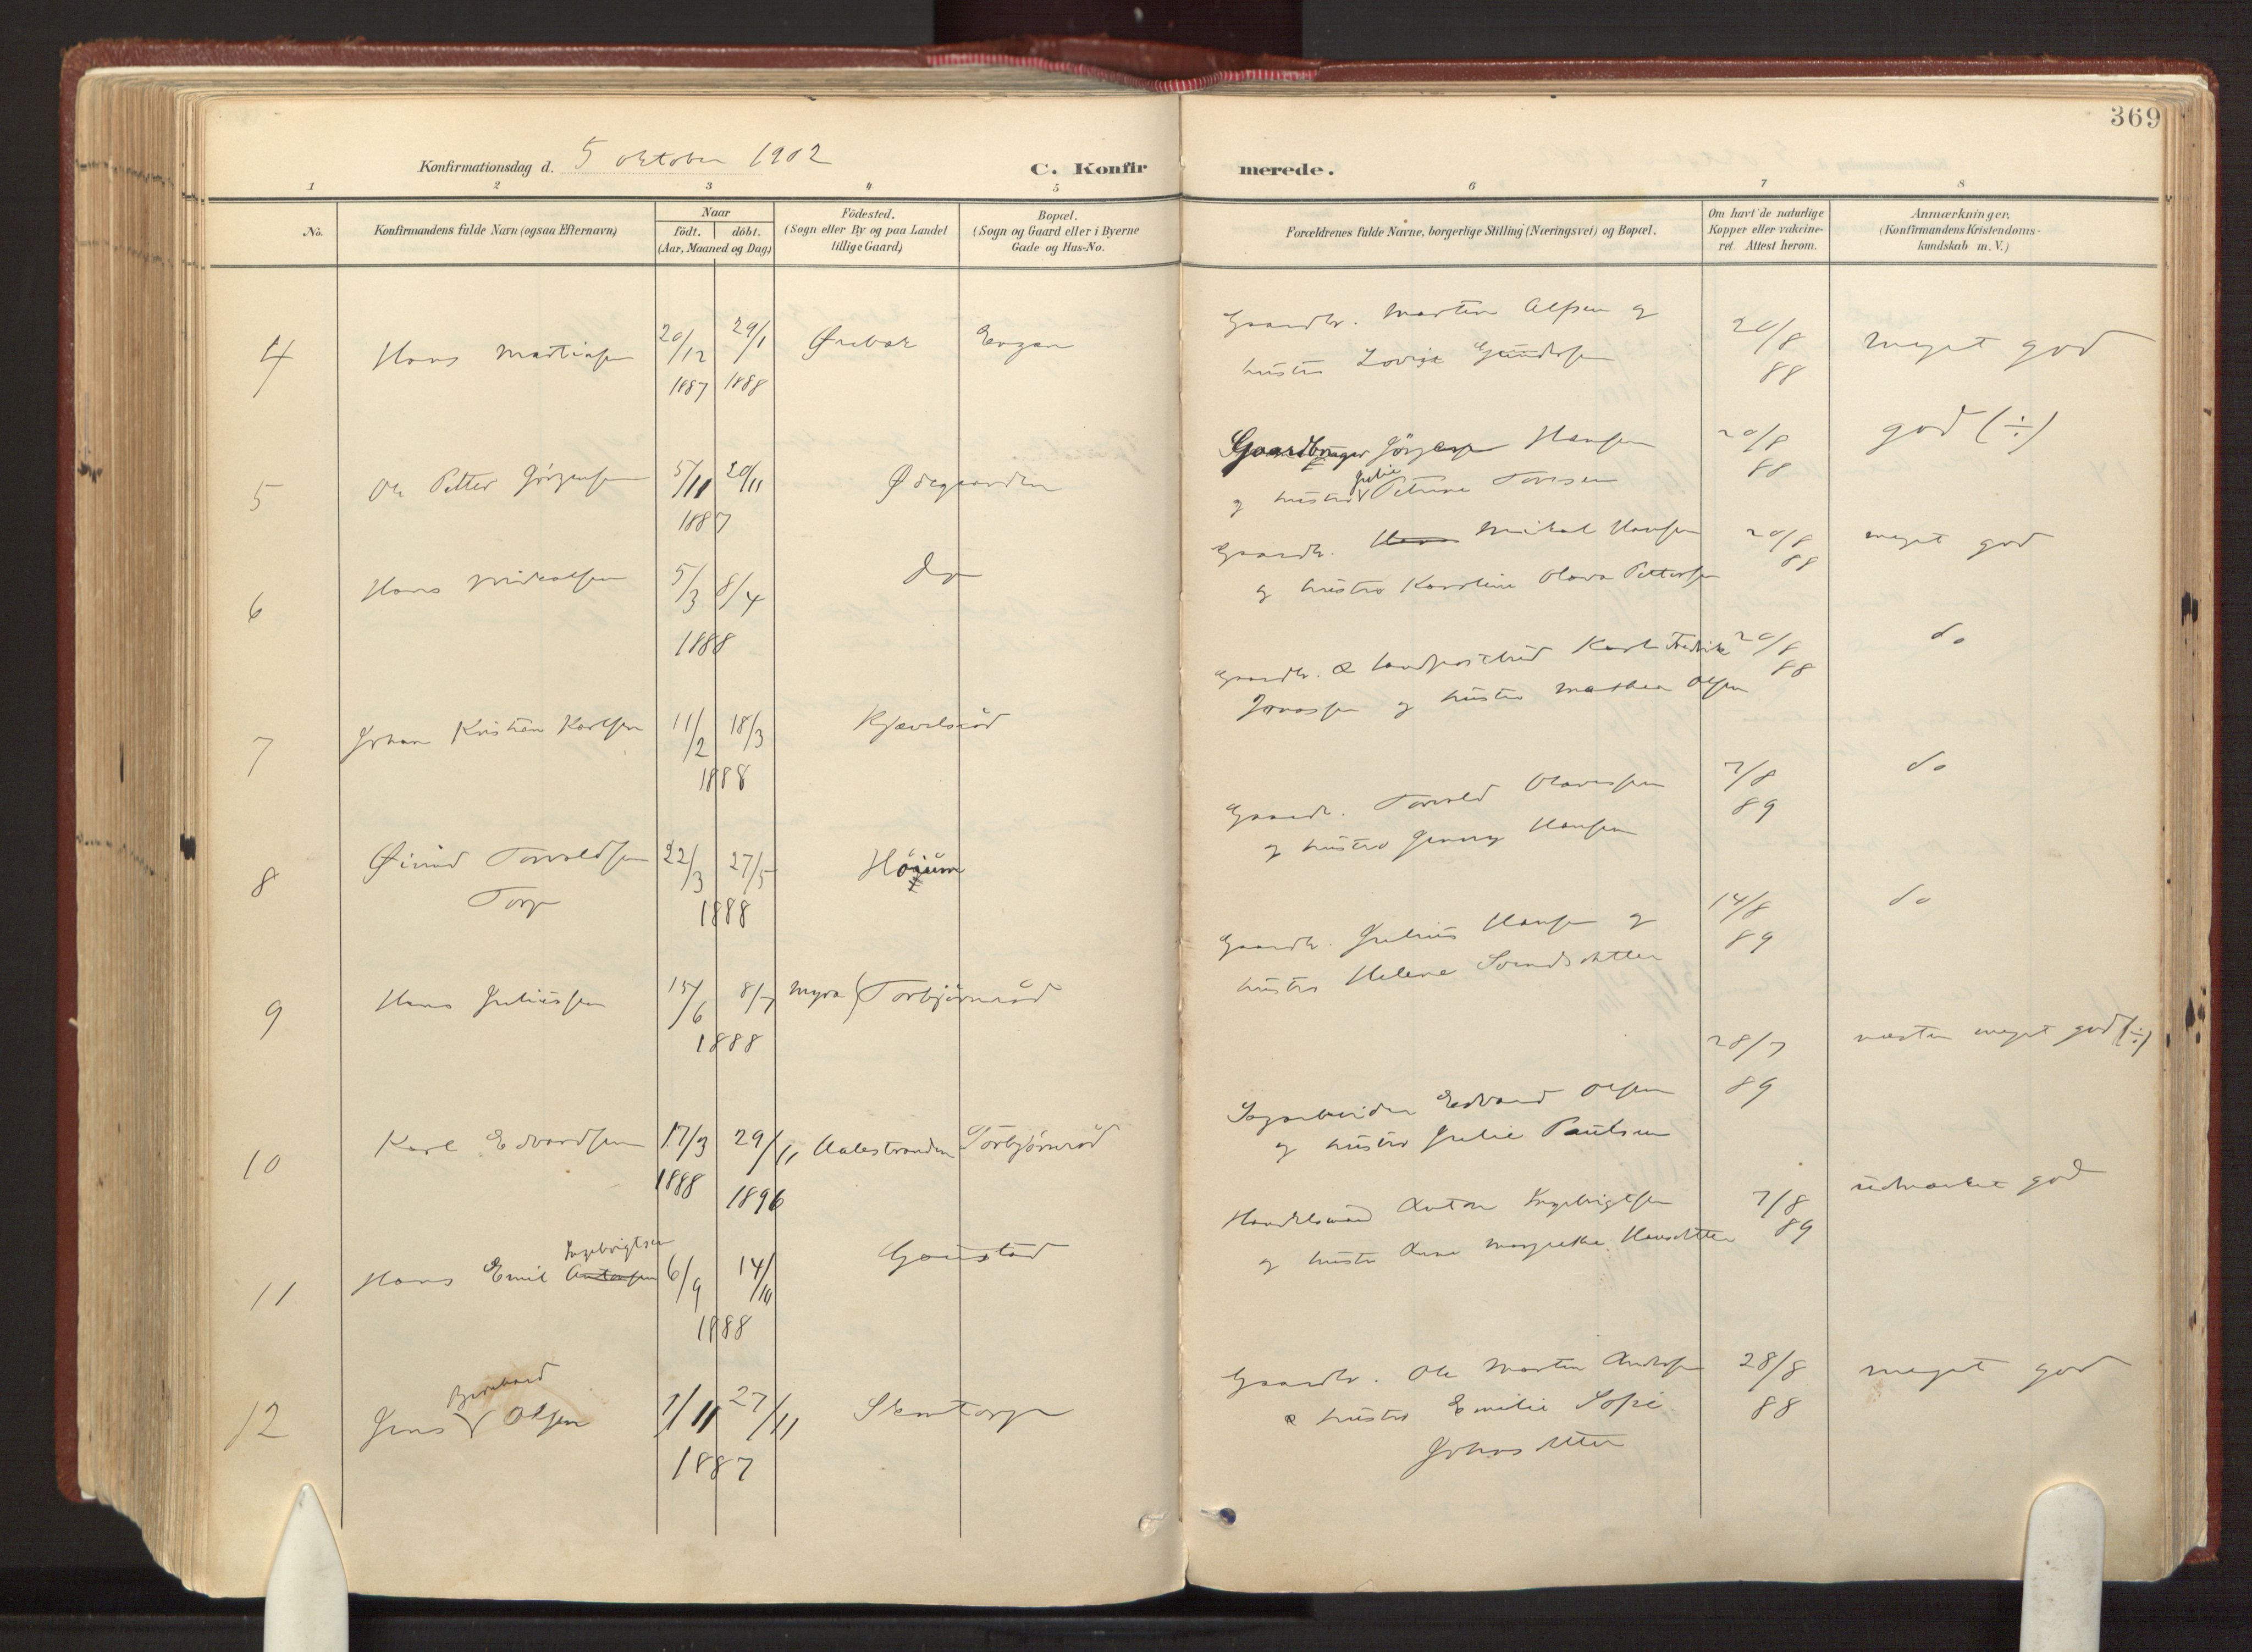 369
Konfirmationsdag d. 5 oktober 1902
C. Konfirmerede.
1 2 3 4 5 6 7 8
No.
Konfirmandens fulde Navn (ogsaa Efternavn)
Naar
födt. döbt.
(Aar, Maaned og Dag)
Födested.
(Sogn eller By og paa Landet
tillige Gaard)
Bopæl.
(Sogn og Gaard eller i Byerne
Gade og Hus-No.
Forældrenes fulde Navne, borgerlige Stilling (Næringsvei) og Bopæl.
Om havt de naturlige
Kopper eller vakcine-
ret. Attest herom.
Anmærkninger.
(Konfirmandens Kristendoms-
kundskab m. V.)
4 Hans Martinsen 20/12 1887 29/1 1888
Gaardbr. Martin Olsen og
hustru Lovise
20/8 88 meget god
5 Ole Petter Jörgensen 5/11 20/11 1887 Ødegaarden
Gaardbruger Jörgen Hansen
og hustru Julie Petrine
20/8 88 god (÷)
6 Hans Mikalsen 5/3 8/4 1888 do
Gaardbr. Mikal Hansen
og hustru Karoline Olava Pettersen
20/8 88 meget god
7 Johan Kristian Karlsen 11/2 18/3 1888
Gaardbr. & landpostbud Karl Fredrik
Jonassen og hustru Mathea Olsen
20/8 88 do
8 Øivind Torvaldsen 22/3 27/5 1888 Höium
Torp
Gaardb. Torvald Olavessen
og hustru Jenny Hansen
7/8 89 do
9 Hans Juliussen 15/6 8/7 1888 Myra / Torbjörnröd
Gaardbr. Julius Hansen og
hustru Helene
14/8 89 do
10 Karl Edvardsen 17/3 1888 29/11 1896 Aalestranden Torbjörnröd
Sagarbeider Edvard Olsen
og hustru Julie Paulsen
28/7 89 næsten meget god (÷)
11 Hans Emil Antonsen Ingebrigtsen 6/9 14/10 1888 Gaustad
Handelsmand Anton Ingebrigtsen
og hustru Anne Margrethe Hansdtter
7/8 89 udmærket god
12 Jens Bernhard Olsen 1/11 27/11 1887 Skovtorp
Gaardbr. Ole Martin Andersen
& hustru Emilie Sofie
Johansdtter
28/8 88 meget god